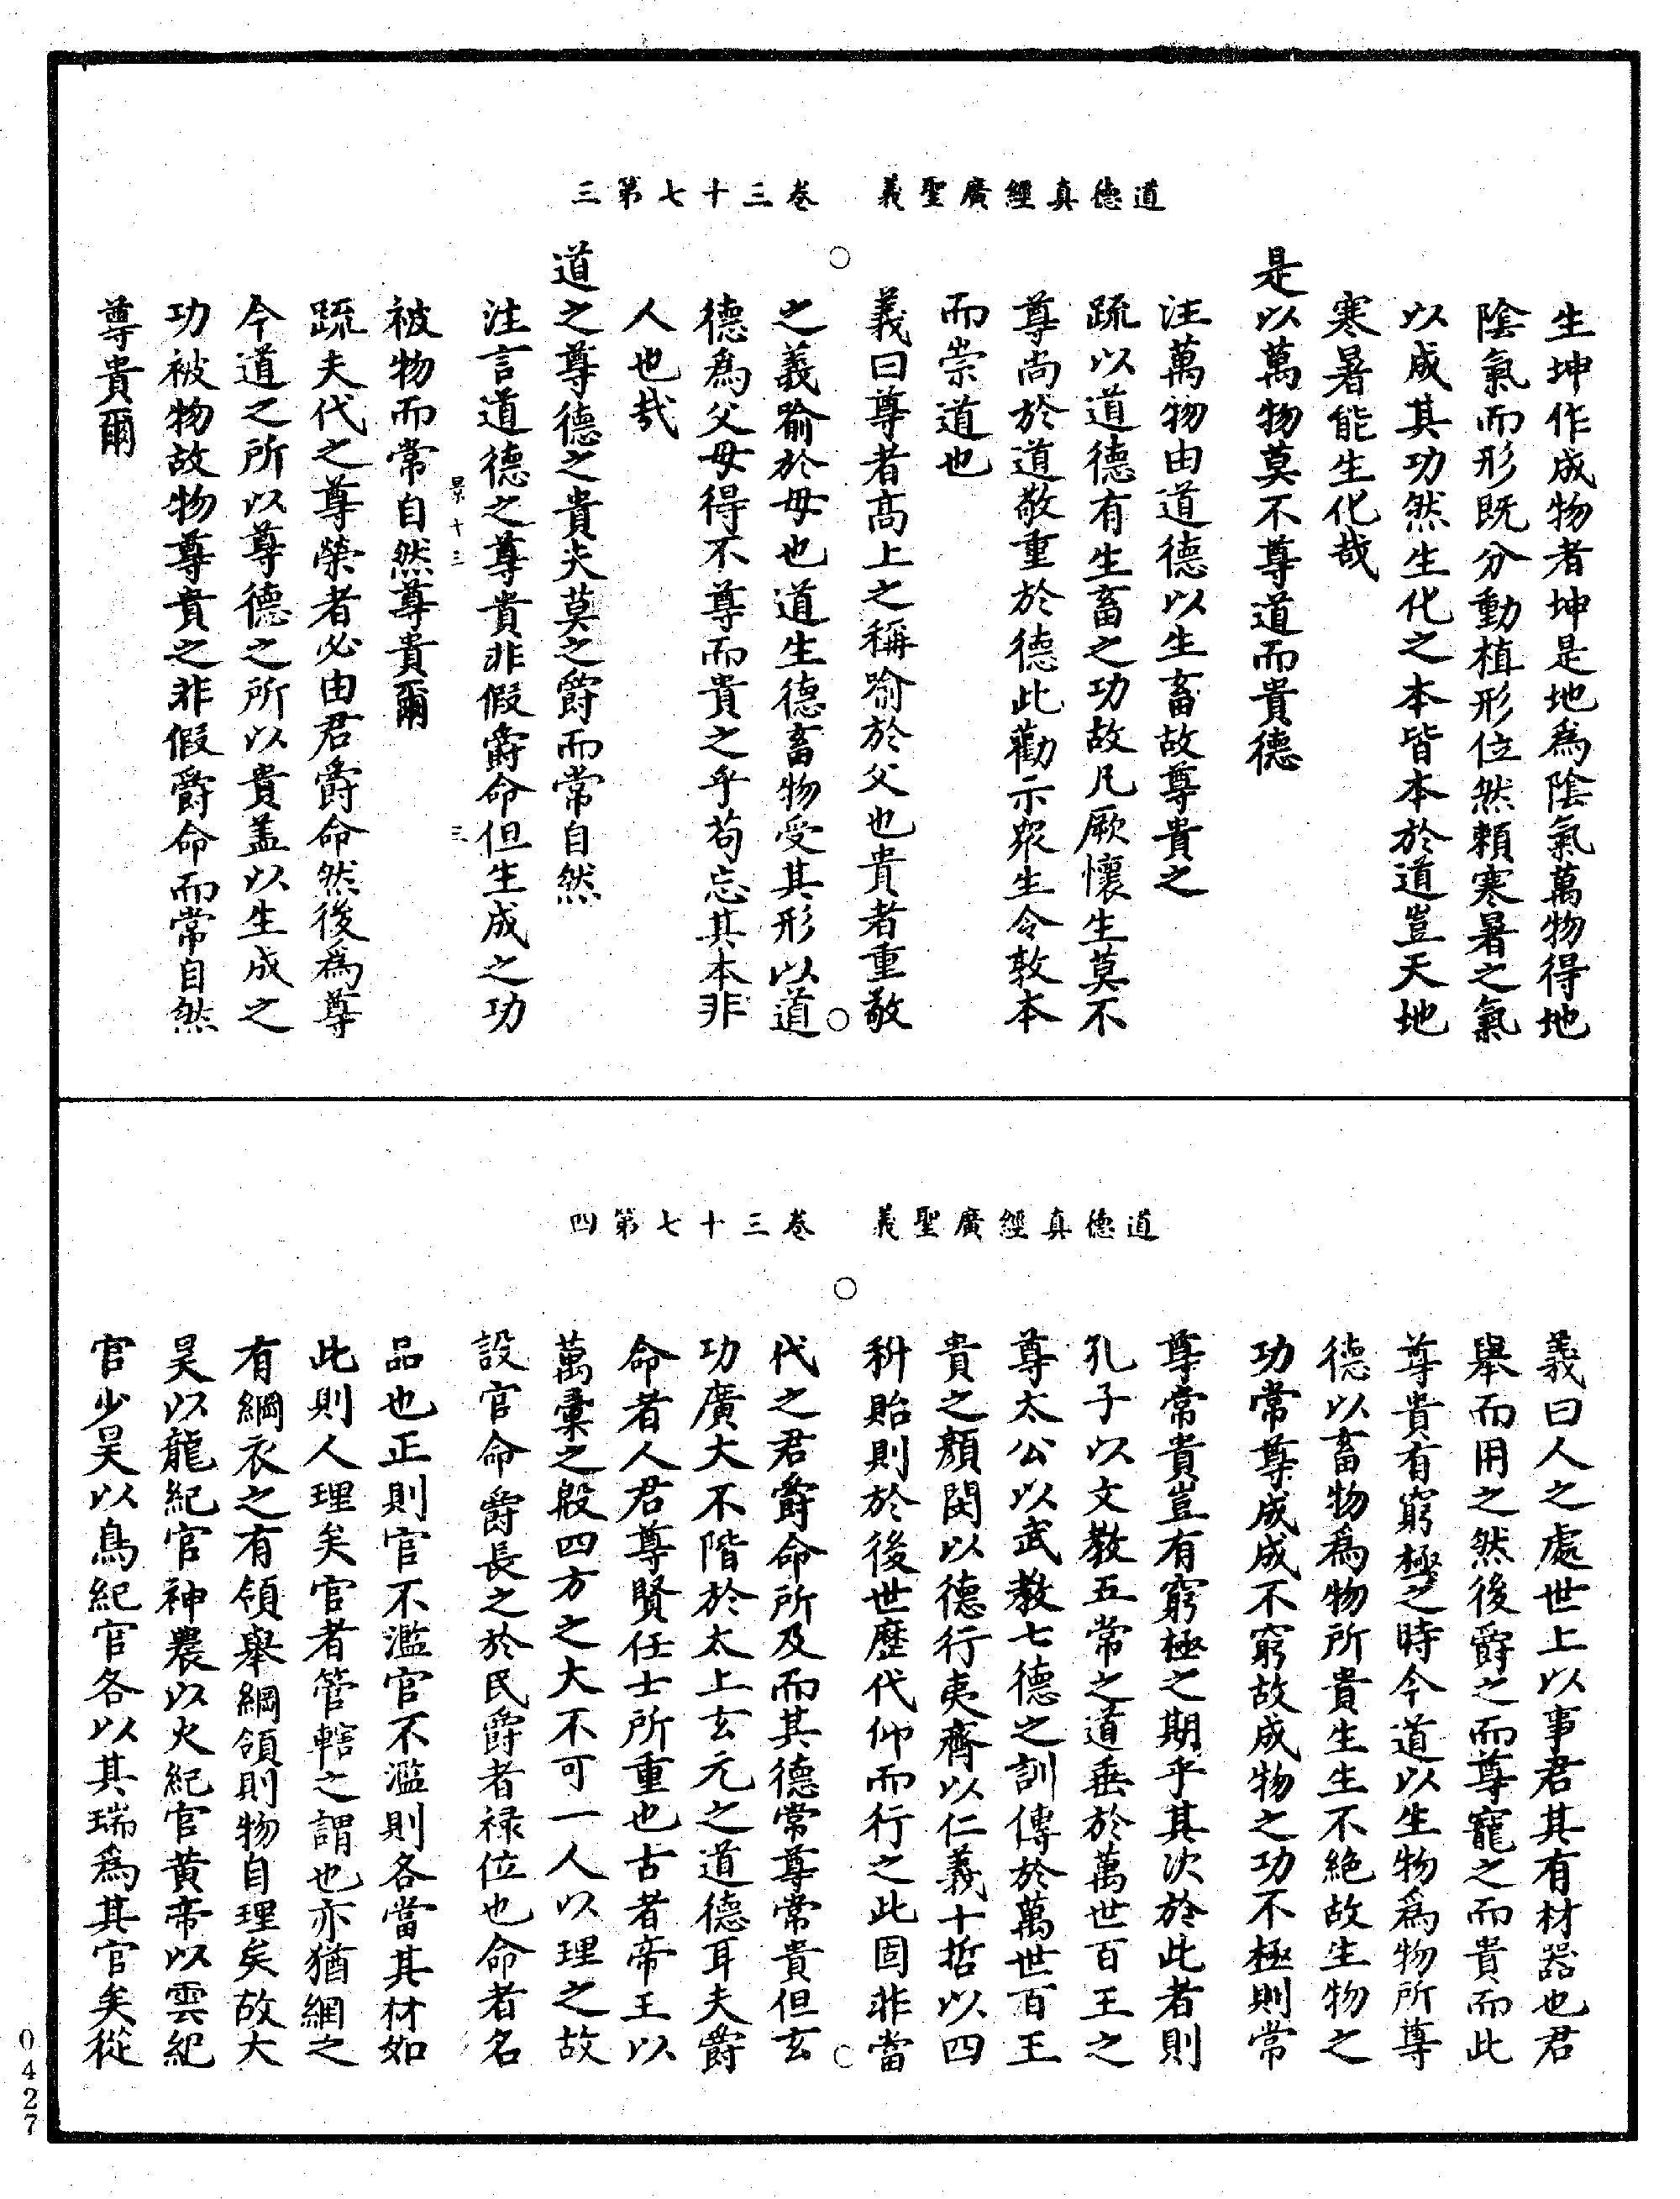 道德真經廣聖義　卷三十七第三
生坤作成物者坤是地爲陰氣萬物得地
陰氣而形既分動植形位然賴寒暑之氣
以成其功然生化之本皆本於道豈天地
寒暑能生化哉
是以萬物莫不尊道而貴德
注萬物由道德以生畜故尊貴之
疏以道德有生畜之功故凡厥懷生莫不
尊尚於道敬重於德此勸示衆生令敦本
而崇道也
義曰尊者高上之稱喻於父也貴者重敬
之義喻於母也道生德畜物受其形以道
德爲父母得不尊而貴之乎苟忘其本非
人也哉
道之尊德之貴夫莫之爵而常自然
注言道德之尊貴非假爵命但生成之功
景十三　三
被物而常自然尊貴爾
疏夫代之尊榮者必由君爵命然後爲尊
今道之所以尊德之所以貴盖以生成之
功被物故物尊貴之非假爵命而常自然
尊貴爾
道德真經廣聖義　卷三十七第四
義曰人之處世上以事君其有材器也君
舉而用之然後爵之而尊寵之而貴而此
尊貴有窮極之時今道以生物爲物所尊
德以畜物爲物所貴生生不絶故生物之
功常尊成成不窮故成物之功不極則常
尊常貴豈有窮極之期乎其次於此者則
孔子以文教五常之道垂於萬世百王之
尊太公以武教七德之訓傳於萬世百王
貴之顏閔以德行夷齊以仁義十哲以四
科貽則於後世歷代仰而行之此固非當
代之君爵命所及而其德常尊常貴但玄
功廣大不階於太上玄元之道德耳夫爵
命者人君尊賢任士所重也古者帝王以
萬彙之殷四方之大不可一人以理之故
設官命爵長之於民爵者禄位也命者名
品也正則官不濫官不濫則各當其材如
此則人理矣官者管轄之謂也亦猶網之
有綱衣之有領舉綱領則物自理矣故大
昊以龍紀官神農以火紀官黄帝以雲紀
官少昊以鳥紀官各以其瑞爲其官矣從
0427